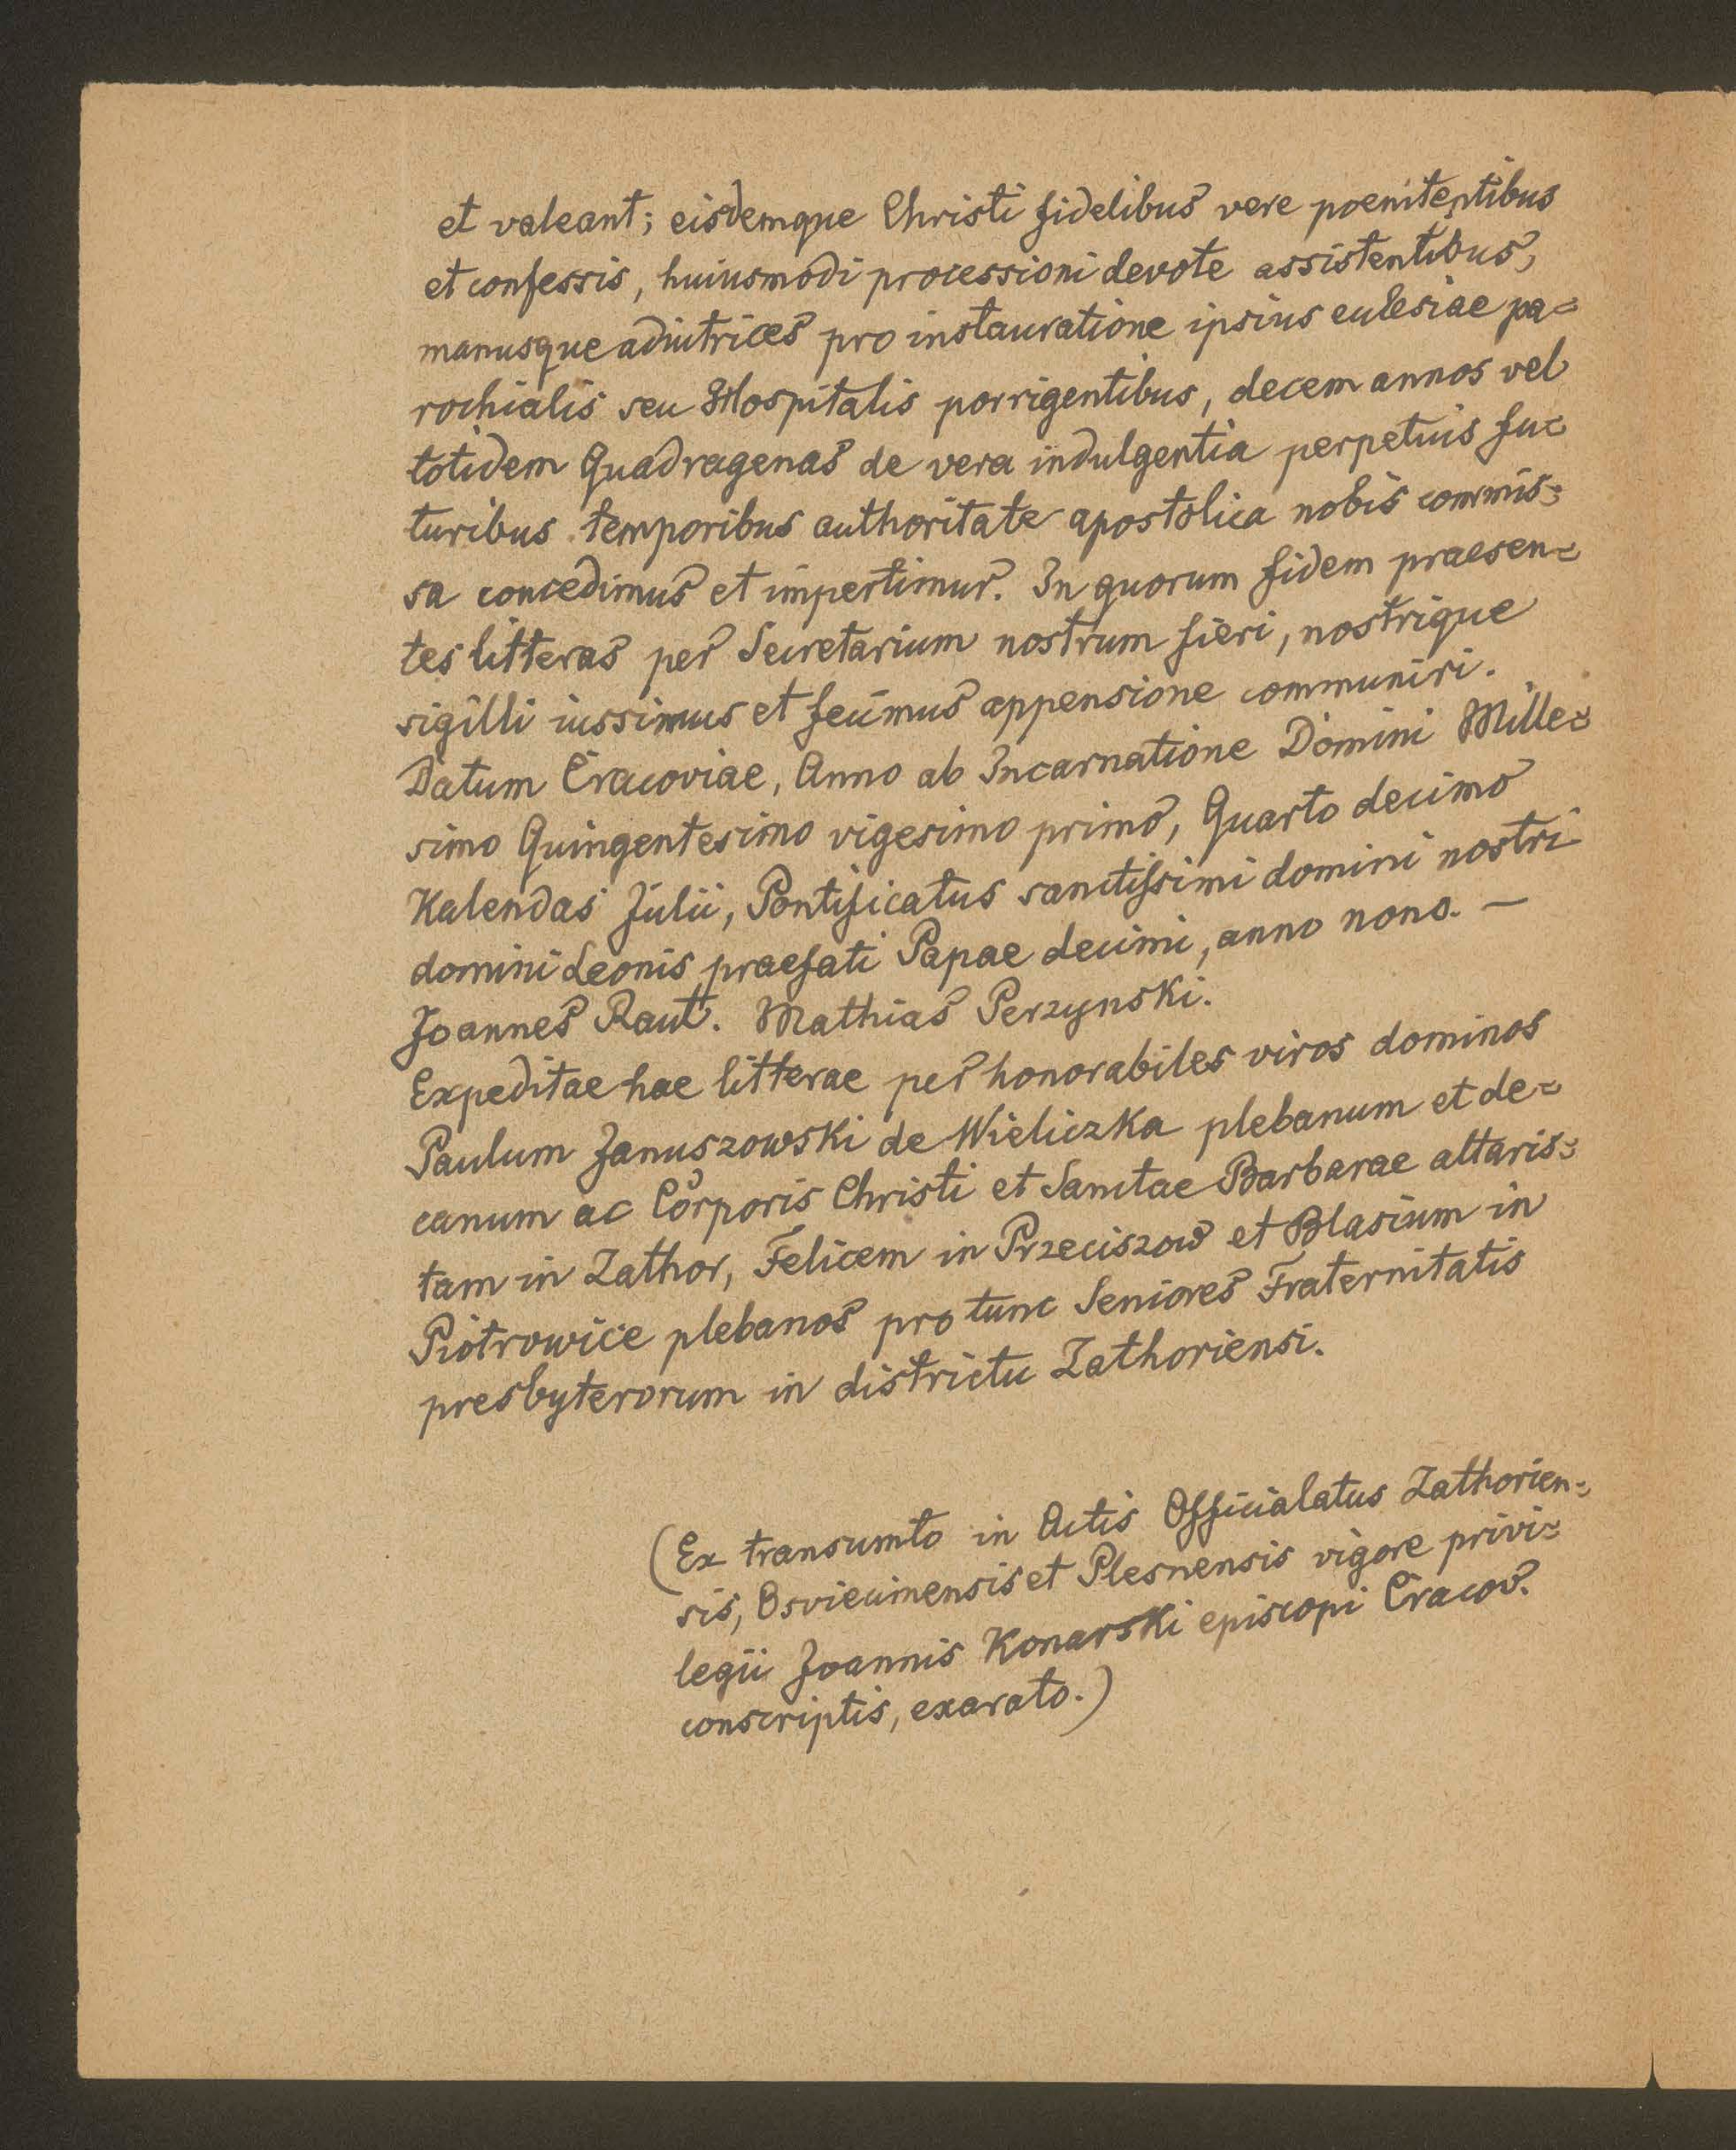 et valeant; eisdemque Christi fidelibus vere poenitentibus
et confessis, huiusmodi processioni devote assistentibus,
manusque adiutrices pro instauratione ipsius ecclesiae pa=
rochialis seu Hospitalis porrigentibus, decem annos vel
totidem Quadragenas de vera indulgentia perpetuis fu=
turibus temporibus authoritate apostolica nobis commis=
sa concedimus et impertimur. In quorum fidem praesen=
tes litteras per Secretarium nostrum fieri, nostrique
sigilli iussimus et fecimus appensione communiri.
Datum Cracoviae, Anno ab Incarnatione Domini Mille=
simo Quingentesimo vigesimo primo, Quarto decimo
Kalendas Julii, Pontificatus sanctissimi domini nostri
domini Leonis praefati Papae decimi, anno nono. —
Joannes Raut. Mathias Perzynski.
Expeditae hae litterae per honorabiles viros dominos
Paulum Januszowski de Wieliczka plebanum et de=
canum ac Corporis Christi et Sanctae Barbarae altaris=
tam in Zathor, Felicem in Przeciszow et Blasium in
Piotrowice plebanos pro tunc Seniores Fraternitatis
presbyterorum in districtu Zathoriensi.
(Ex transumto in Actis Officialatus Zathorien=
sis, Osviecimensis et Plesnensis vigore privi=
legii Joannis Konarski episcopi Cracov.
conscriptis, exarato.)